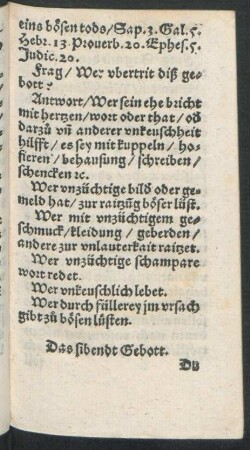 eins bösen tods/Sap. 3. Gal. 5.
Hebr. 13 Prouerb. 20. Ephes. 5.
Judic. 20.
Frag/Wer vbertrit diß ge-
bott?
Antwort/Wer sein ehe bricht
mit hertzen/wort oder that/od
darzů vñ anderer vnkeuschheit
hilfft/es sey mit kuppeln/ho-
fieren/behausung/schreiben/
schencken ꝛc.
Wer vnzüchtige bild oder ge-
meld hat/zur raitzũg böser lüst.
Wer mit vnzüchtigem ge-
schmuck/kleidung/geberden/
andere zur vnlauterkait raitzet.
Wer vnzüchtige schampare
wort redet.
Wer vnkeuschlich lebet.
Wer durch füllerey jm vrsach
gibt zů bösen lüsten.
Das sibendt Gebott.
Du